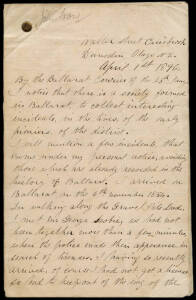 Walter Street Caversham
Dunedin Otago N.Z.
April 1st 1896
By the Ballarat Courier of the 25th
I notice that there is a society formed
in Ballarat to collect interesting
incidents, in the lives of the early
pioneers, of the district.
I will mention a few incidents, that
came under my personal notice, amidst
those which are already recorded in the
history of Ballarat. I arrived in
Ballarat in the
In walking along the Gravel Pits Lead,
I met Mr George Scobie, we had not
been together more than a few minutes,
when the police made their appearance in
search of licenses. I having so recently
arrived, of course I had not got a license
so had to keep out of the way of the